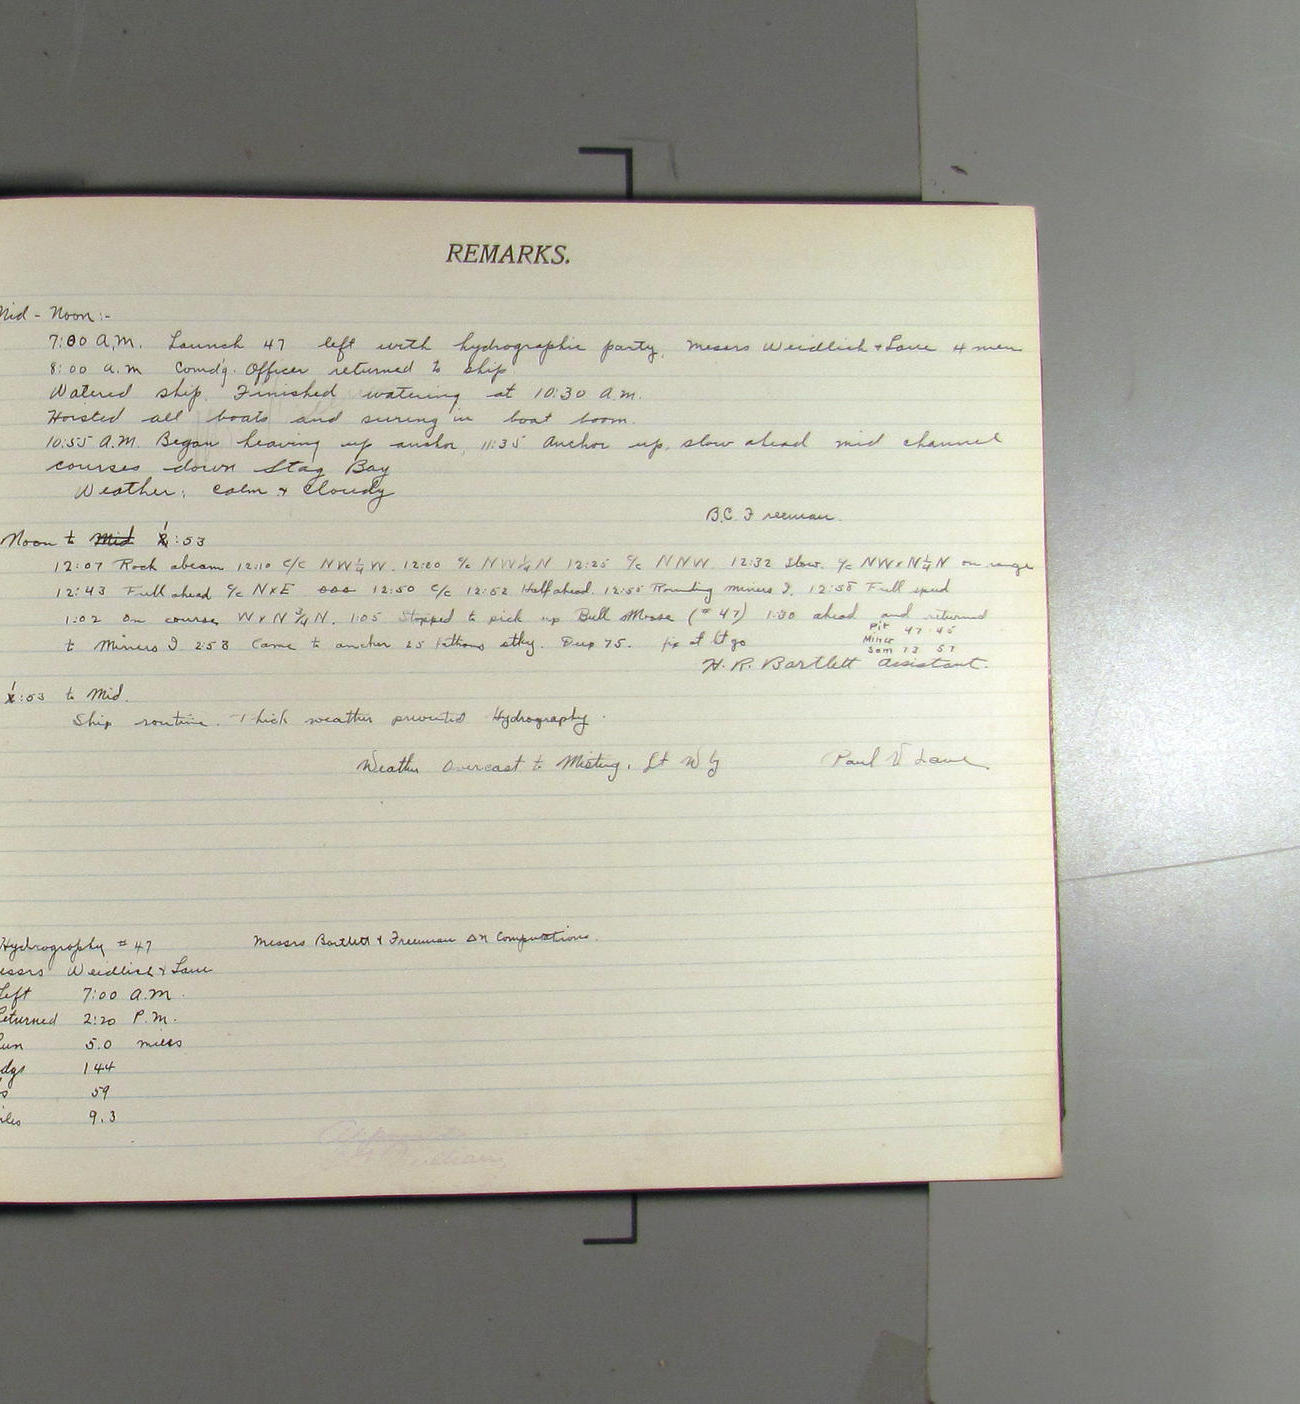 REMARKS.
Mid - Noon:-
7:00 A.M. Launch 47 left with hydrographic party, Messrs Weidlich & Lane 4 men
8:00 a.m Comdg. Officer returned to ship.
Watered ship. Finished watering at 10:30 A.M.
Hoisted all boats and swung in boat boom.
10:55 A.M. Began heaving up anchor, 11:35 Anchor up, slow ahead mid channel
courses down Stag Bay
Weather: Calm & Cloudy
B.C. Freeman.
Noon to Mid :53
12:07 Rock abeam 12:10 C/C NW¼W. 12:20 C/c NW¼N 12:25 C/c NNW. 12:32 Slow. C/c NWxN¼N on range
12:43 Full ahead C/c NxE 12:50 C/c 12:52 Half ahead. 12:55 Rounding miners I. 12:58 Full speed
1:02 on course WxN¾N. 1:05 Stopped to pick up Bull Moose (#47) 1:30 ahead and returned
to Miners I 2:53 Came to anchor 25 fathoms stky. Deep 75. fix at let go
Pit 47 45
Miner
Sam 73 57
H. R. Bartlett Assistant.
:53 to Mid.
Ship routine. Thick weather prevented Hydrography.
Weather Overcast to Misting. Lt Wly
Paul V Lane
Hydrography #47
Messrs Bartlett & Freeman on Computations.
Messrs Weidlich & Lane
Left 7:00 A.M.
Returned 2:20 P.M.
Run 5.0 miles
144
59
9.3